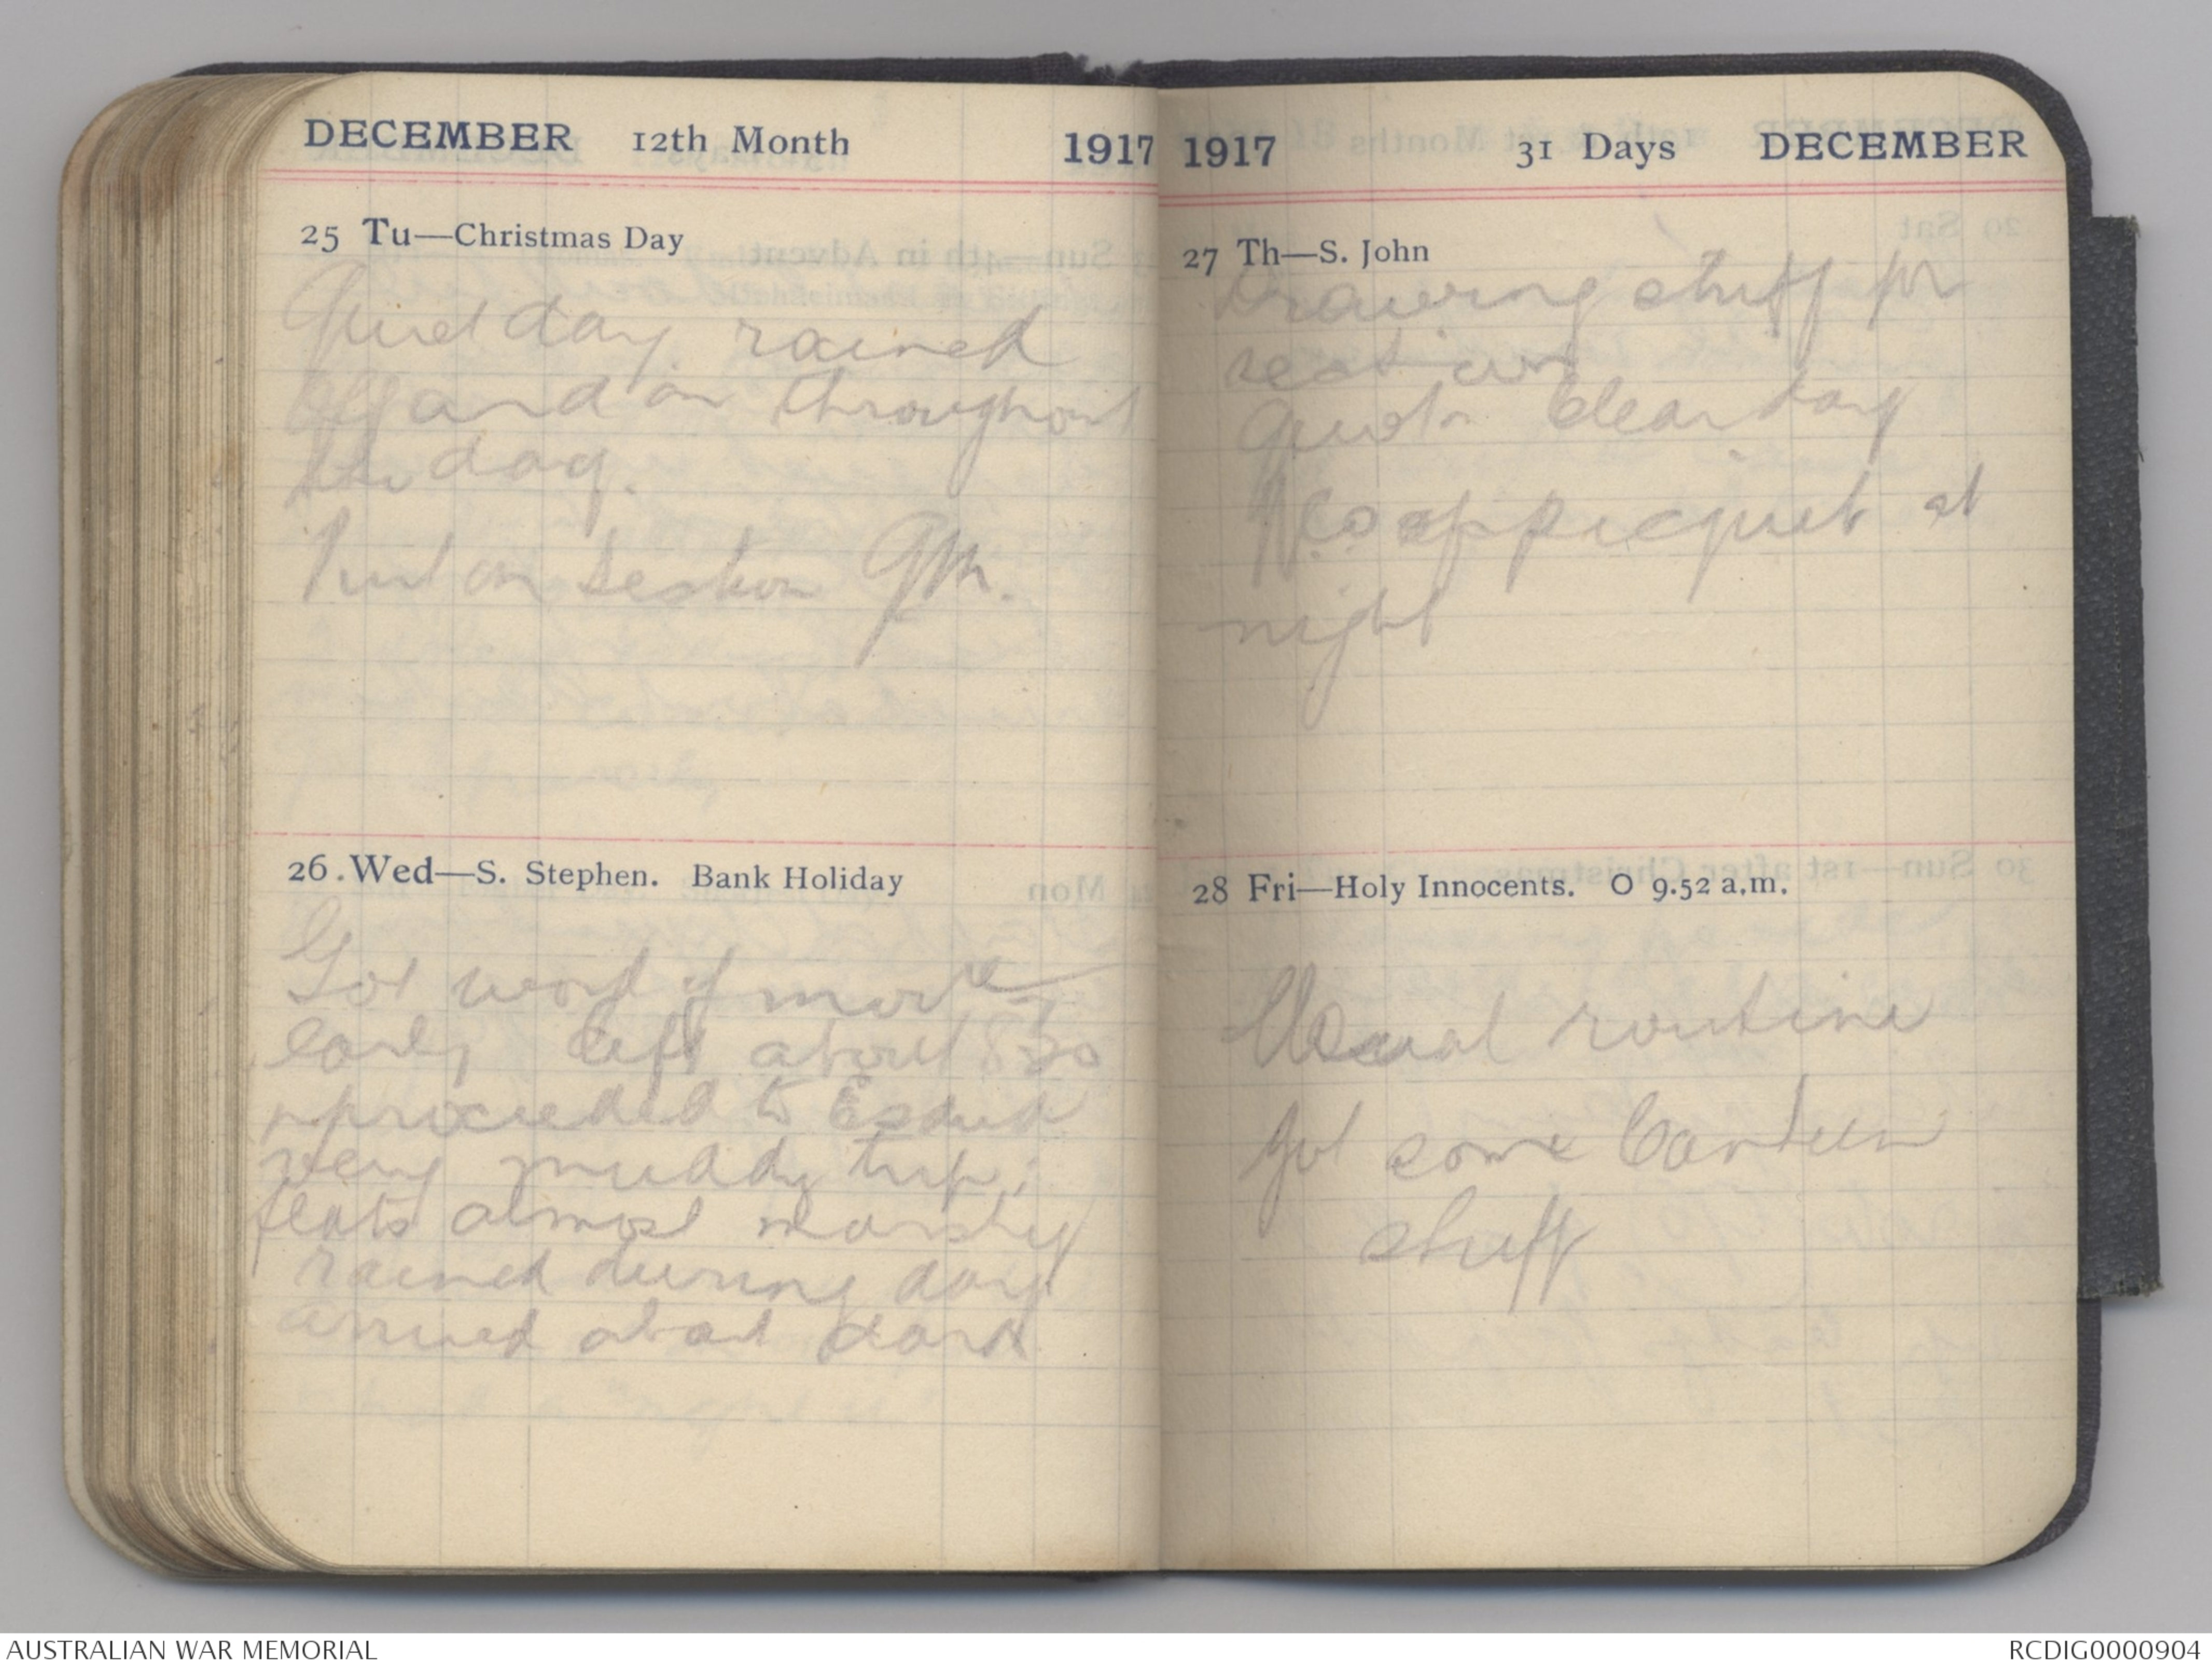 DECEMBER 12th Month 1917
25 Tu—Christmas Day
Quiet day rained
off and on throughout
the day.
Put on section QM.
26. Wed—S. Stephen. Bank Holiday
Got word of move
early left about 830
proceeded to Esdud
very muddy trip;
flats almost marshy
rained during day
arrived about dark
1917 31 Days DECEMBER
27 Th—S. John
Drawing stuff for
section
Quiet clear day
N.C.O. of picquet at
night
28 Fri—Holy Innocents. O 9.52 a.m.
Usual routine
got some Canteen
stuff
AUSTRALIAN WAR MEMORIAL
RCDIG0000904